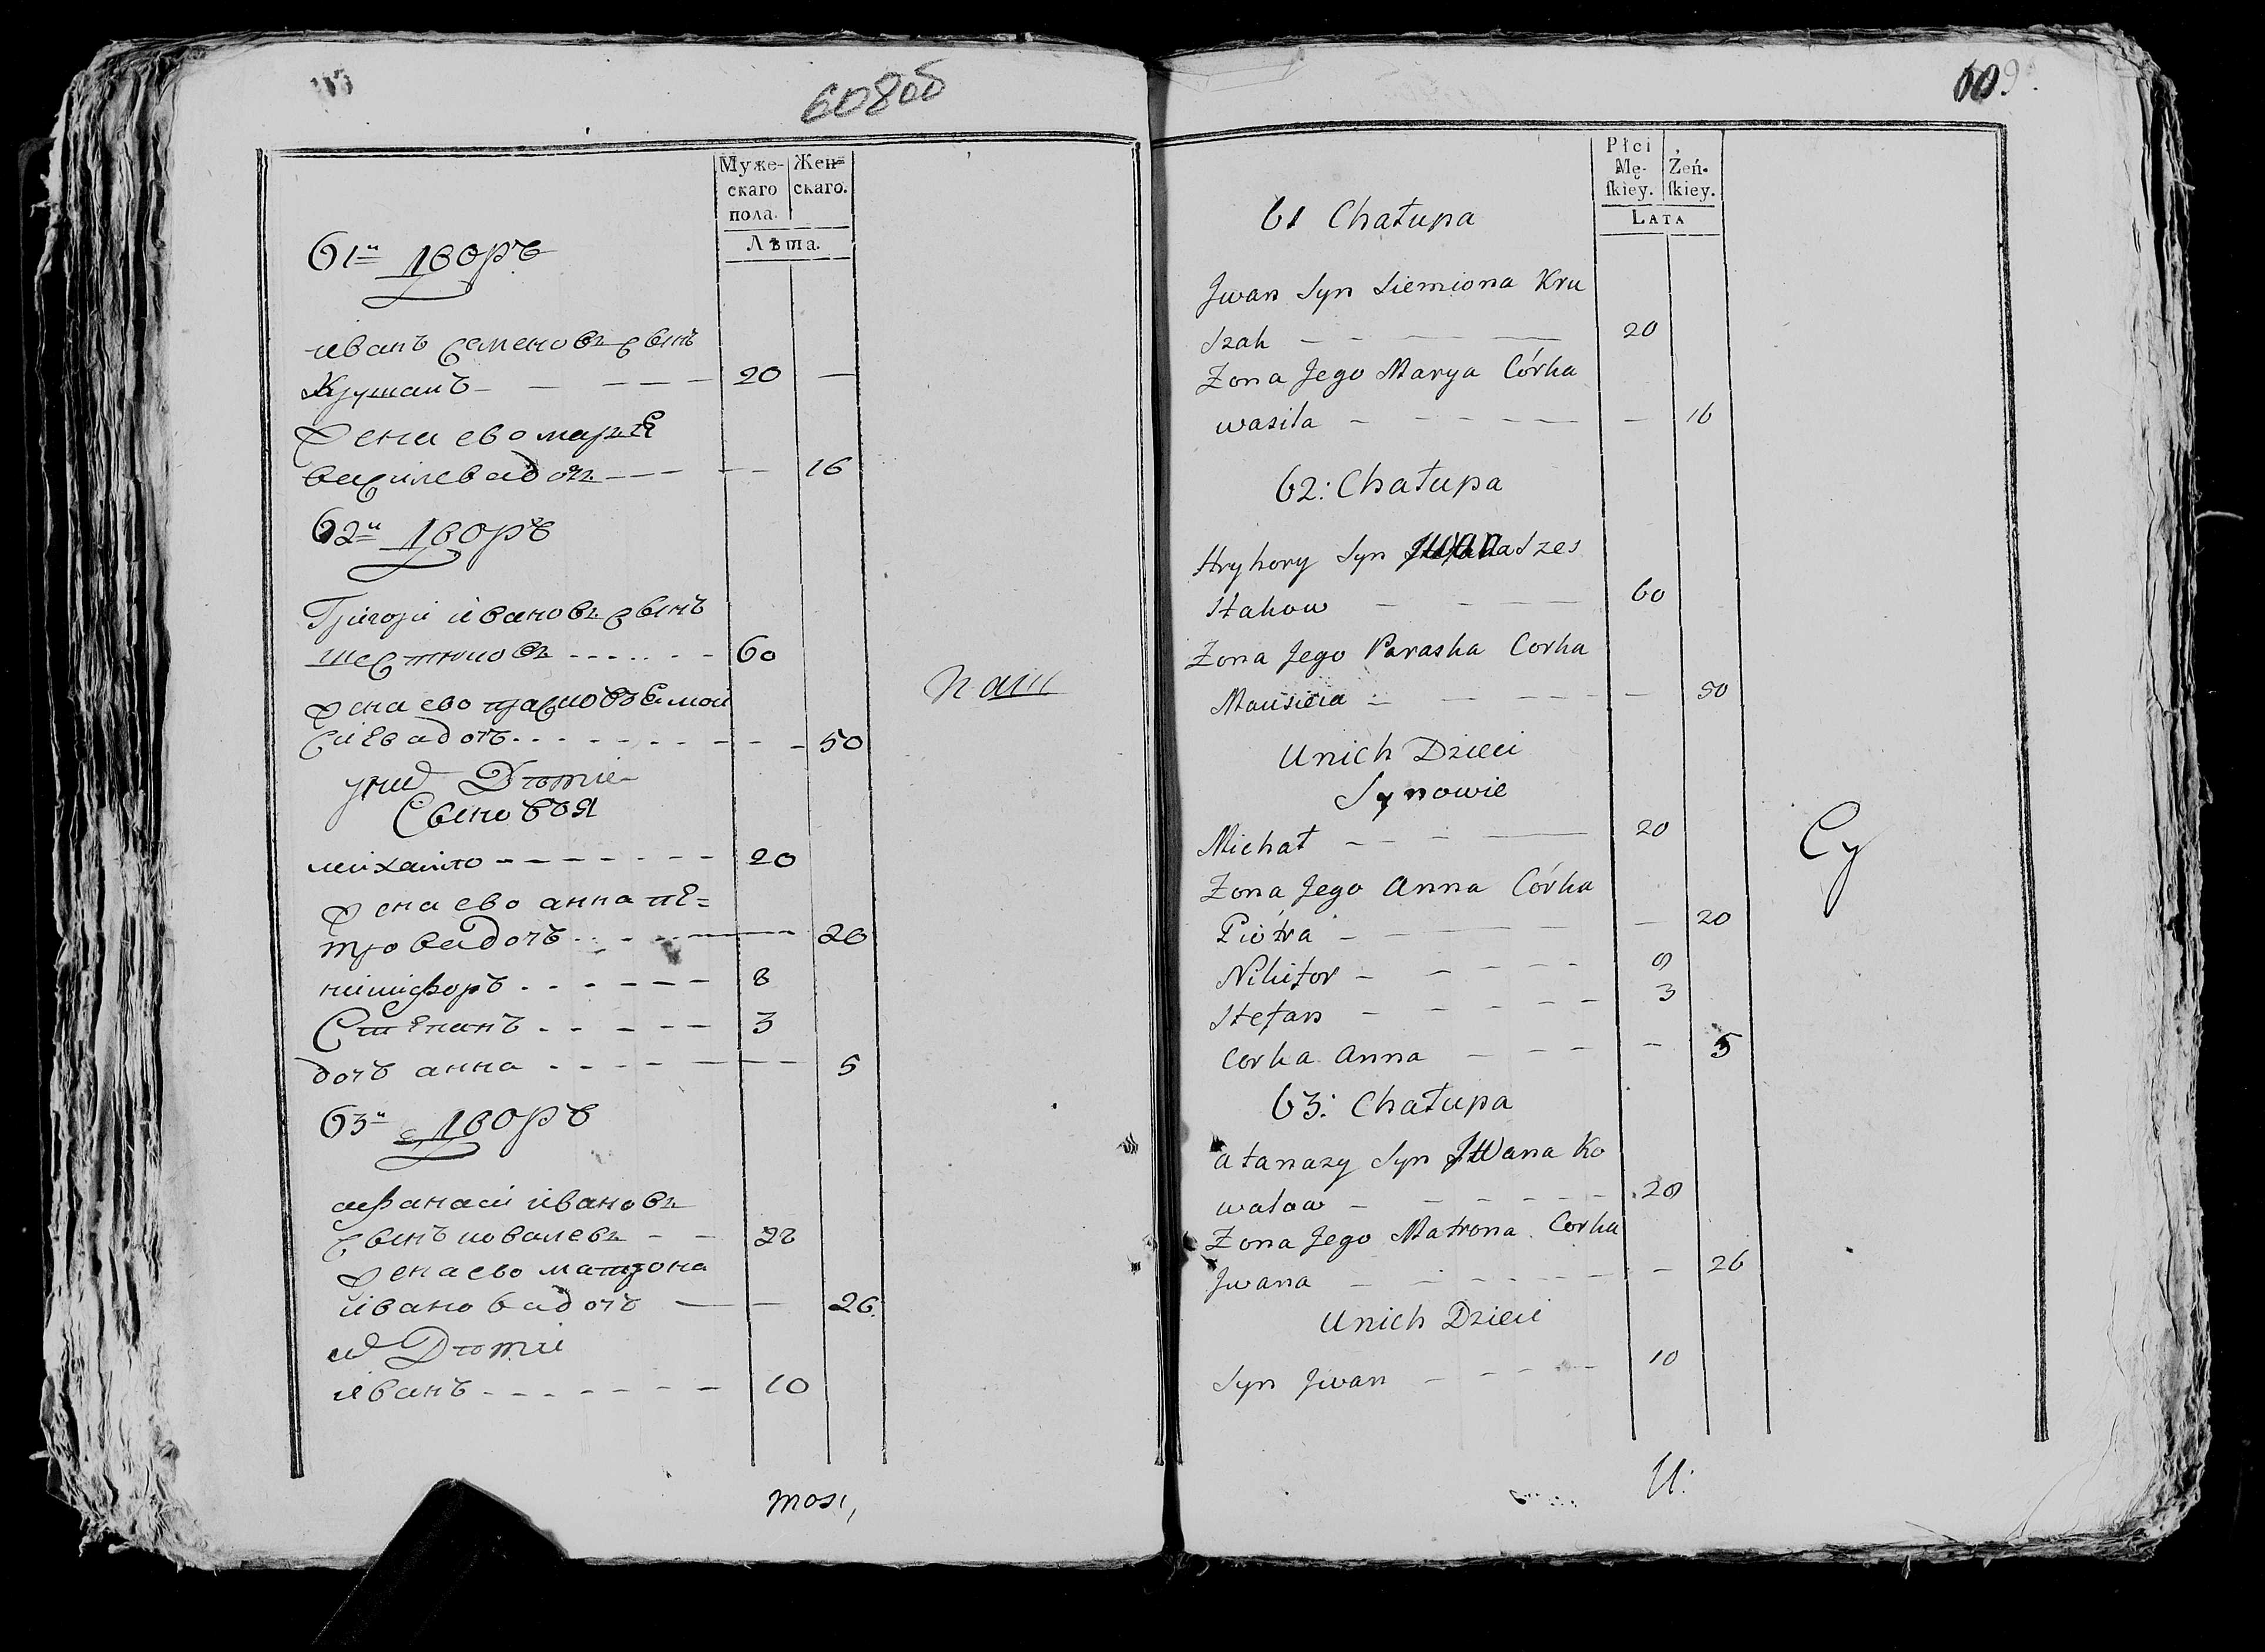 608об
Муже- Жен=
скаго скаго.
пола.
Лѣта.
61й Дворъ
иванъ Семеновъ Сынъ
Крушакъ - - - - - 20 —
Жена ево марья
василева дочь - - - - - 16
62й Дворъ
Григори ивановъ Сынъ
шестаковъ - - - - - - 60
жена ево прасковья мои
сиева дочь - - - - - - - 50
у них Дѣти
Сыновья
михаило - - - - - - - 20
жена ево анна пе=
трова дочь - - - - - 20
никифоръ - - - - - - 8
Степанъ - - - - - 3
дочь анна - - - - - 5
63й Дворъ
афанаси ивановъ
Сынъ ковалевъ - - 28
жена ево матрона
иванова дочь — — 26.
их Дѣти
иванъ - - - - - - - 10
609.
Płci
Mę- Żeń-
ſkiey. ſkiey.
LATA
61 Chałupa
Jwan Syn Siemiona Kru
szak - - - - 20
Żona Jego Marya Córka
wasila - - - - - - 16
62: Chałupa
Hryhory Syn Jwana Szes
stakow - - - 60
Żona Jego Paraska Corka
Mousieia - - - - - 50
Unich Dzieci
Synowie
Michał - - - 20
Żona Jego Anna Córka
Piótra - - - - - 20
Nikifor - - - - - 8
Stefan - - - - - 3
Corka Anna - - - - 5
63: Chałupa
Afanazy Syn Jwana Ko
walow - - - - - - 28
Żona Jego Matrona Corka
Jwana - - - - - - - 26
Unich Dzieci
Syn Jwan - - - - 10
Су
U: